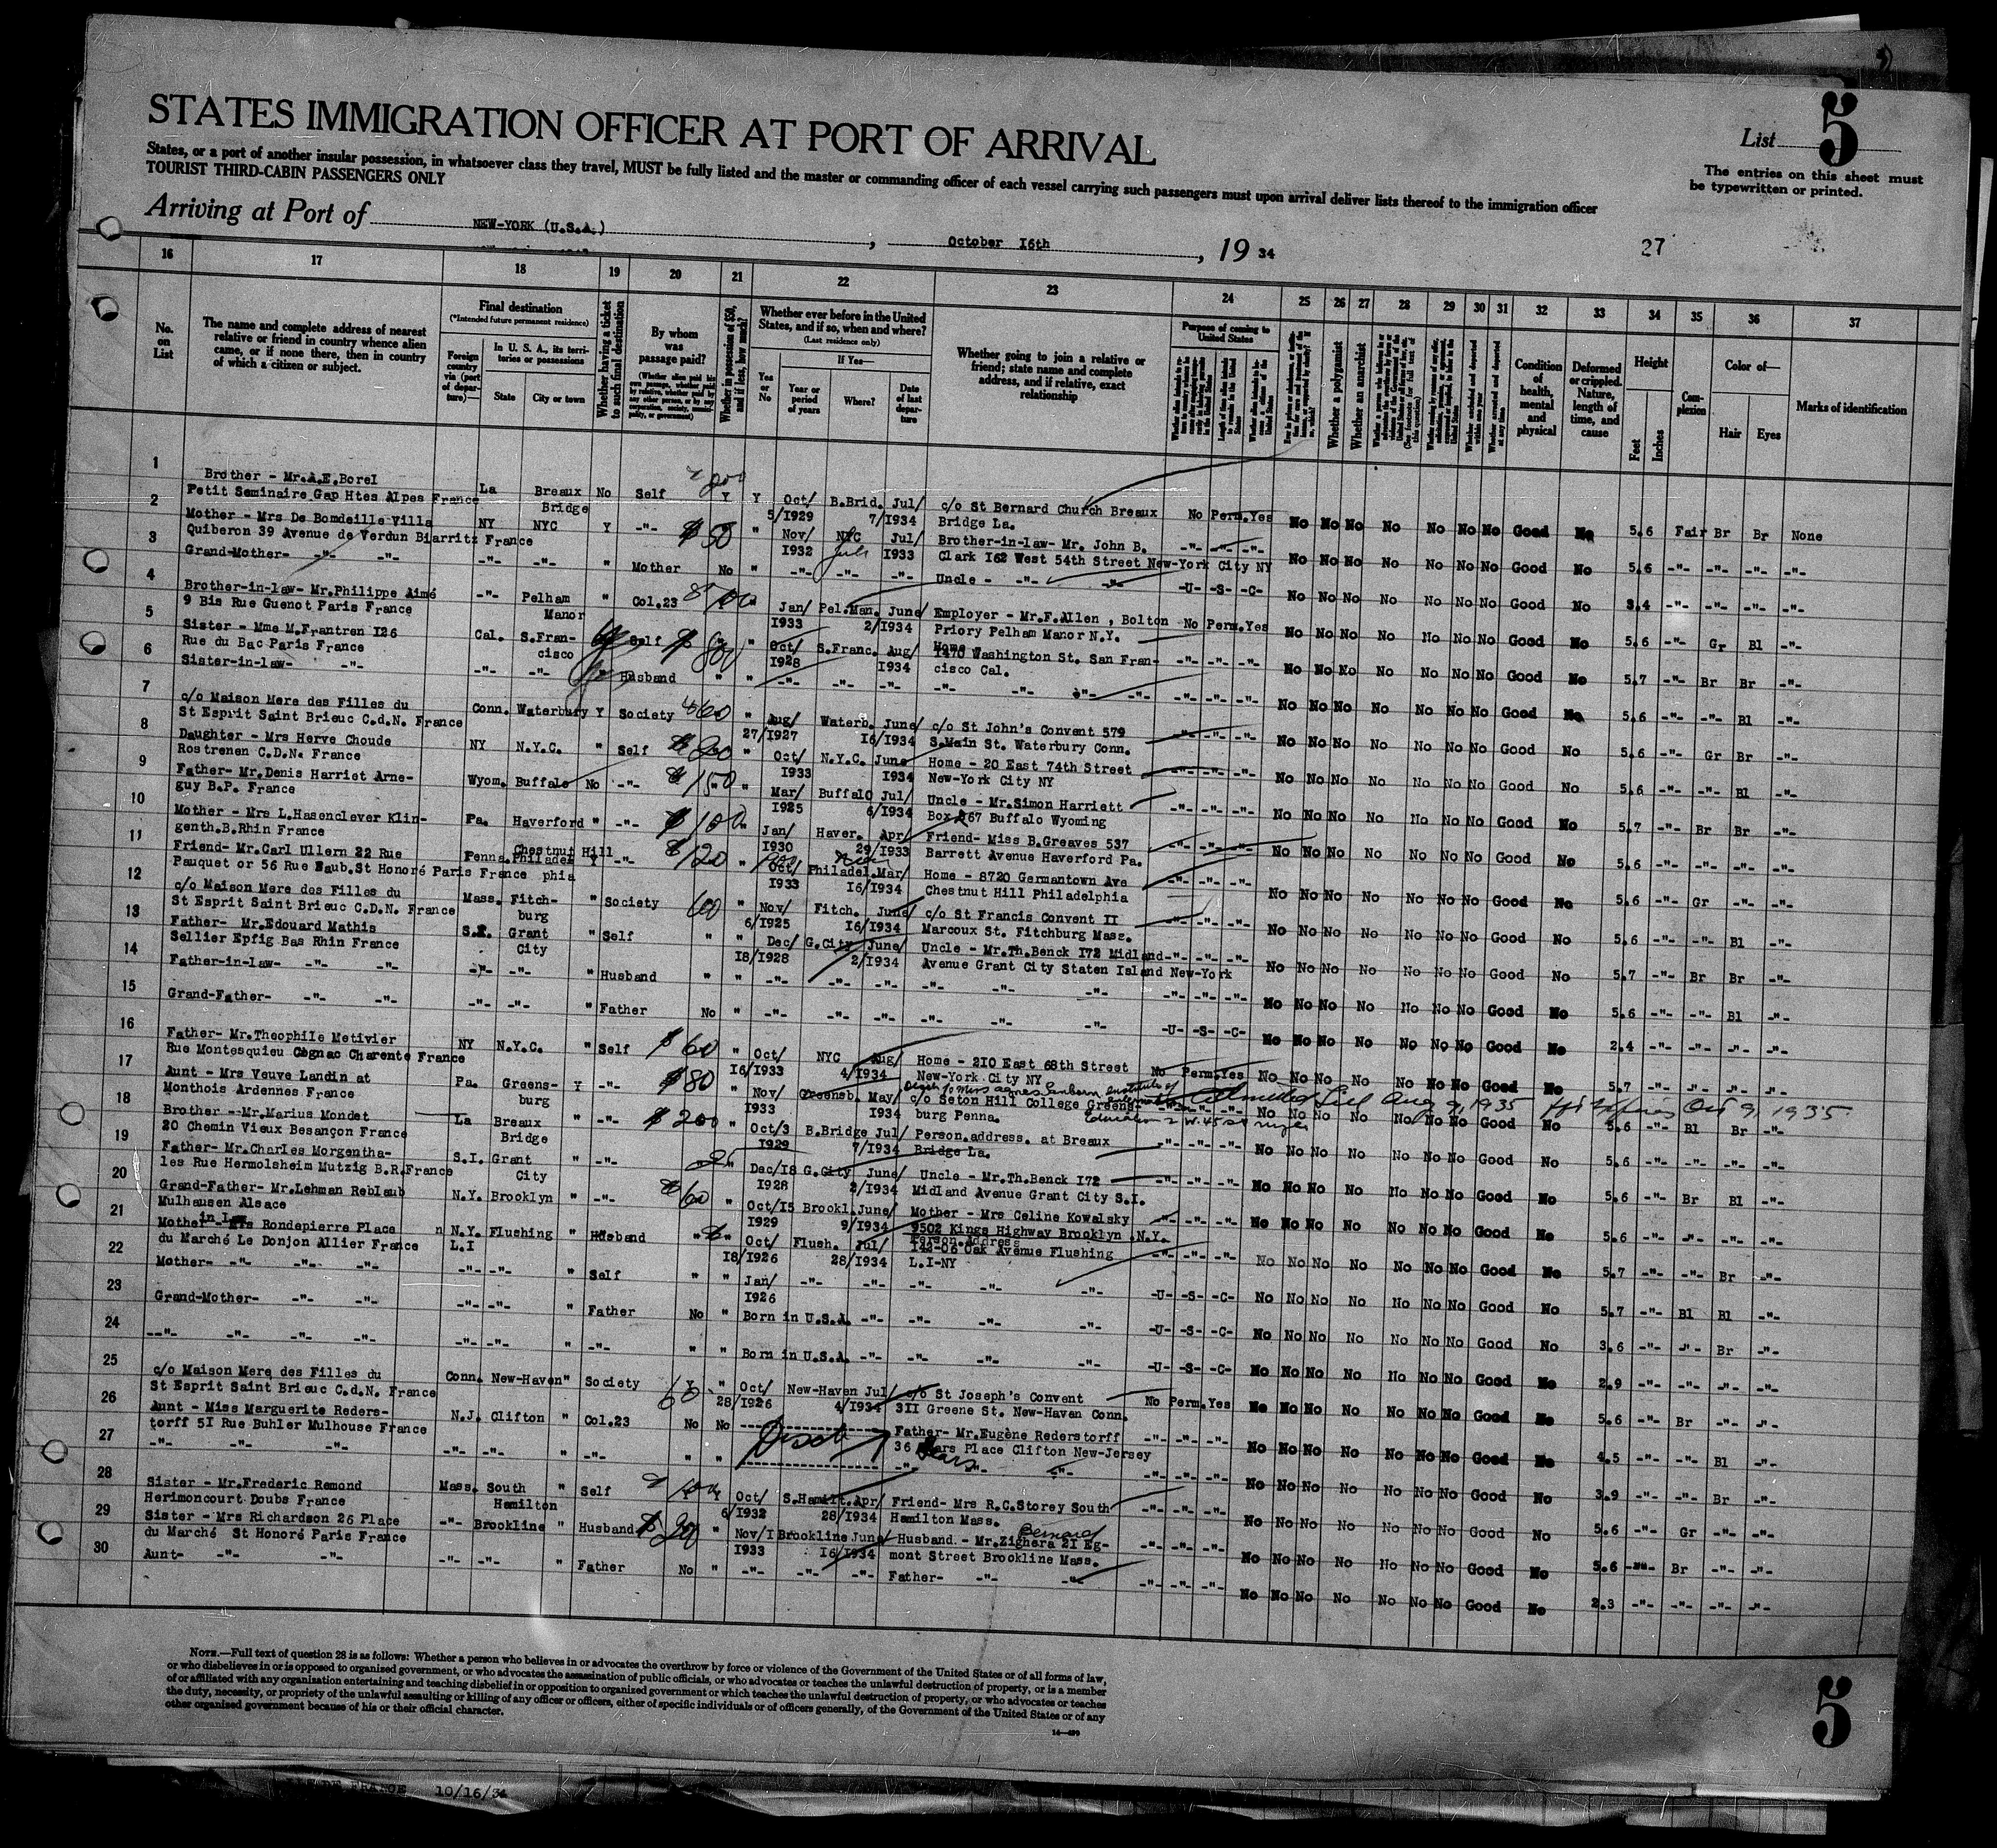 STATES IMMIGRATION OFFICER AT PORT OF ARRIVAL
List 5
States, or a port of another insular possession, in whatsoever class they travel, MUST be fully listed and the master or commanding officer of each vessel carrying such passengers must upon arrival deliver lists thereof to the immigration officer
TOURIST THIRD-CABIN PASSENGERS ONLY
The entries on this sheet must
be typewritten or printed.
Arriving at Port of NEW-YORK (U.S.A.), October I6th, 19 34
27
16 17 18 19 20 21 22 23 24 25 26 27 28 29 30 31 32 33 34 35 36 37
No. on List
The name and complete address of nearest relative or friend in country whence alien came, or if none there, then in country of which a citizen or subject.
Final destination
(*Intended future permanent residence)
Foreign country via (port of departure)—
In U. S. A., its territories or possessions
State
City or town
Whether having a ticket to such final destination
By whom was passage paid?
Whether in possession of $50, and if less, how much?
Whether ever before in the United States, and if so, when and where?
(Last residence only)
Yes or No
If Yes—
Year or period of years
Where?
Date of last departure
Whether going to join a relative or friend; state name and complete address, and if relative, exact relationship
Purpose of coming to United States
Whether a polygamist
Whether an anarchist
Condition of health, mental and physical
Deformed or crippled. Nature, length of time, and cause
Height
Feet
Inches
Complexion
Color of—
Hair
Eyes
Marks of identification
1
2 Brother - Mr.A.E.Borel
Petit Seminaire Gap Htes Alpes France La Breaux Bridge No Self Y Y Oct/ 5/I929 B.Brid. Jul/ 7/I934 c/o St Bernard Church Breaux Bridge La. No Perm. Yes No No No No No No No Good No 5.6 Fair Br Br None
3 Mother - Mrs De Bomdeille Villa
Quiberon 39 Avenue de Verdun Biarritz France NY NYC Y -"- $ 50 " Nov/ I932 NYC Jul/ I933 Brother-in-law- Mr. John B. Clark I62 West 54th Street New-York City NY -"- -"- -"- No No No No No No No Good No 5.6 -"- -"- -"- -"-
4 Grand-Mother- -"- -"- -"- -"- " Mother No " -"- -"- -"- Uncle - -"- -"- -U- -S- -C- No No No No No No No Good No 3.4 -"- -"- -"- -"-
5 Brother-in-law- Mr.Philippe Aimé
9 Bis Rue Guenot Paris France -"- Pelham Manor " Col.23 Jan/ I933 Pel.Man. June 2/I934 Employer - Mr.F.Allen , Bolton Priory Pelham Manor N.Y. No Perm. Yes No No No No No No No Good No 5.6 -"- Gr Bl -"-
6 Sister - Mme M.Frantren I26
Rue du Bac Paris France Cal. S.Francisco Self Oct/ I928 S.Franc. Aug/ I934 Home I470 Washington St. San Francisco Cal. -"- -"- -"- No No No No No No No Good No 5.7 -"- Br Br -"-
7 Sister-in-law- -"- -"- -"- Husband " " -"- -"- -"- -"- -"- -"- -"- -"- -"- No No No No No No No Good No 5.6 -"- -"- Bl -"-
8 c/o Maison Mere des Filles du
St Esprit Saint Brieuc C.d.N. France Conn. Waterbury Y Society 60 " Aug/ 27/I927 Waterb. June/ I6/I934 c/o St John's Convent 579 S.Main St. Waterbury Conn. -"- -"- -"- No No No No No No No Good No 5.6 -"- Gr Br -"-
9 Daughter - Mrs Herve Choude
Rostrenen C.D.N. France NY N.Y.C. " Self " Oct/ I933 N.Y.C. June I934 Home - 20 East 74th Street New-York City NY -"- -"- -"- No No No No No No No Good No 5.6 -"- -"- Bl -"-
10 Father- Mr.Denis Harriet Arneguy B.P. France Wyom. Buffalo No -"- $ 150 " Mar/ I925 Buffalo Jul/ 6/I934 Uncle - Mr.Simon Harriett Box 267 Buffalo Wyoming -"- -"- -"- No No No No No No No Good No 5.7 -"- Br Br -"-
11 Mother - Mrs L.Hasenclever Klingenth.B.Rhin France Pa. Haverford " -"- $ 100 Jan/ I930 Haver. Apr/ 29/I933 Friend- Miss B.Greaves 537 Barrett Avenue Haverford Pa. -"- -"- -"- No No No No No No No Good No 5.6 -"- -"- -"- -"-
12 Friend- Mr.Carl Ullern 22 Rue
Pauquet or 56 Rue Faub.St Honoré Paris France Penna. Chestnut Hill Philadelphia Y -"- $ 120 " Oct/ I933 Philadel. Mar/ I6/I934 Home - 8720 Germantown Ave Chestnut Hill Philadelphia -"- -"- -"- No No No No No No No Good No 5.6 -"- Gr -"- -"-
13 c/o Maison Mere des Filles du
St Esprit Saint Brieuc C.D.N. France Mass. Fitchburg " Society 60 " Nov/ 6/I925 Fitch. June/ I6/I934 c/o St Francis Convent II Marcoux St. Fitchburg Mass. -"- -"- -"- No No No No No No No Good No 5.6 -"- -"- Bl -"-
14 Father- Mr.Edouard Mathis
Sellier Epfig Bas Rhin France S.I. Grant City " Self " " Dec/ I8/I928 G.City June/ 2/I934 Uncle - Mr.Th.Benck I72 Midland Avenue Grant City Staten Island New-York -"- -"- -"- No No No No No No No Good No 5.7 -"- Br Br -"-
15 Father-in-law- -"- -"- -"- -"- " Husband " " -"- -"- -"- -"- -"- -"- -"- -"- -"- No No No No No No No Good No 5.6 -"- -"- Bl -"-
16 Grand-Father- -"- -"- -"- -"- " Father No " -"- -"- -"- -"- -"- -"- -U- -S- -C- No No No No No No No Good No 2.4 -"- -"- -"- -"-
17 Father- Mr.Theophile Metivier
Rue Montesquieu Cognac Charente France NY N.Y.C. " Self $ 60 " Oct/ I6/I933 NYC Aug/ 4/I934 Home - 2I0 East 68th Street New-York City NY No Perm. Yes No No No No No No No Good No 5.7 -"- -"- -"- -"-
18 Aunt - Mrs Veuve Landin at
Monthois Ardennes France Pa. Greensburg Y -"- $ 80 " Nov/ I933 Greensb. May/ I934 c/o Seton Hill College Greensburg Penna. Admitted till Aug 9, 1935 Oct 9, 1935 No No No No No No No Good No 5.6 -"- Bl Br -"-
19 Brother - Mr.Marius Mondet
20 Chemin Vieux Besançon France La Breaux Bridge " -"- $ 200 " Oct/3 I929 B.Bridge Jul/ 7/I934 Person.address. at Breaux Bridge La. -"- -"- -"- No No No No No No No Good No 5.6 -"- -"- -"- -"-
20 Father- Mr.Charles Morgenthales Rue Hermolsheim Mutzig B.R.France S.I. Grant City " -"- " Dec/I8 I928 G.City June/ 2/I934 Uncle - Mr.Th.Benck I72 Midland Avenue Grant City S.I. -"- -"- -"- No No No No No No No Good No 5.6 -"- Br Bl -"-
21 Grand-Father- Mr.Lehman Reblaub
Mulhausen Alsace N.Y. Brooklyn " -"- $ 60 " Oct/I5 I929 Brookl. June/ 9/I934 Mother - Mrs Celine Kowalsky 9502 Kings Highway Brooklyn N.Y. -"- -"- -"- No No No No No No No Good No 5.6 -"- -"- -"- -"-
22 Mother in Law - Mrs Rondepierre Place
du Marché Le Donjon Allier France N.Y. L.I Flushing " Husband " " Oct/ I8/I926 Flush. Jul/ 28/I934 Person.Address I42-06 Oak Avenue Flushing L.I-NY -"- -"- -"- No No No No No No No Good No 5.7 -"- -"- Br -"-
23 Mother- -"- -"- -"- -"- -"- " Self " " Jan/ I926 -"- -"- -"- -"- -"- -U- -S- -C- No No No No No No No Good No 5.7 -"- Bl Bl -"-
24 Grand-Mother- -"- -"- -"- -"- -"- " Father No " Born in U.S.A. -"- -"- -"- -"- -U- -S- -C- No No No No No No No Good No 3.6 -"- -"- Br -"-
25 -"- -"- -"- -"- -"- -"- " -"- " " Born in U.S.A. -"- -"- -"- -"- -U- -S- -C- No No No No No No No Good No 2.9 -"- -"- -"- -"-
26 c/o Maison Mere des Filles du
St Esprit Saint Brieuc C.d.N. France Conn. New-Haven " Society 60 " Oct/ 28/I926 New-Haven Jul/ 4/I934 c/o St Joseph's Convent 3II Greene St. New-Haven Conn. No Perm. Yes No No No No No No No Good No 5.6 -"- Br -"- -"-
27 Aunt - Miss Marguerite Rederstorff 5I Rue Buhler Mulhouse France N.J. Clifton " Col.23 No No Father- Mr.Eugène Rederstorff 36 Sears Place Clifton New-Jersey -"- -"- -"- No No No No No No No Good No 4.5 -"- -"- Bl -"-
28 -"- -"- -"- -"- -"- " -"- " " -"- -"- -"- -"- -"- -"- No No No No No No No Good No 3.9 -"- -"- Br -"-
29 Sister - Mr.Frederic Remond
Herimoncourt Doubs France Mass. South Hamilton " Self Oct/ 6/I932 S.Hamilt. Apr/ 28/I934 Friend- Mrs R.C.Storey South Hamilton Mass. -"- -"- -"- No No No No No No No Good No 5.6 -"- Gr -"- -"-
30 Sister - Mrs Richardson 26 Place
du Marché St Honoré Paris France -"- Brookline " Husband " Nov/I I933 Brookline June/ I6/I934 Husband - Mr.Zighera Bernard 2I Egmont Street Brookline Mass. -"- -"- -"- No No No No No No No Good No 5.6 -"- Br -"- -"-
Aunt- -"- -"- -"- -"- " Father No " -"- -"- -"- Father- -"- -"- -"- -"- -"- No No No No No No No Good No 2.3 -"- -"- -"- -"-
NOTE.—Full text of question 28 is as follows: Whether a person who believes in or advocates the overthrow by force or violence of the Government of the United States or of all forms of law,
or who disbelieves in or is opposed to organized government, or who advocates the assassination of public officials, or who advocates or teaches the unlawful destruction of property, or is a member
of or affiliated with any organization entertaining and teaching disbelief in or opposition to organized government or which teaches the unlawful destruction of property, or who advocates or teaches
the duty, necessity, or propriety of the unlawful assaulting or killing of any officer or officers, either of specific individuals or of officers generally, of the Government of the United States or of any
other organized government because of his or their official character.
14—499
5
DE FRANCE 10/16/34